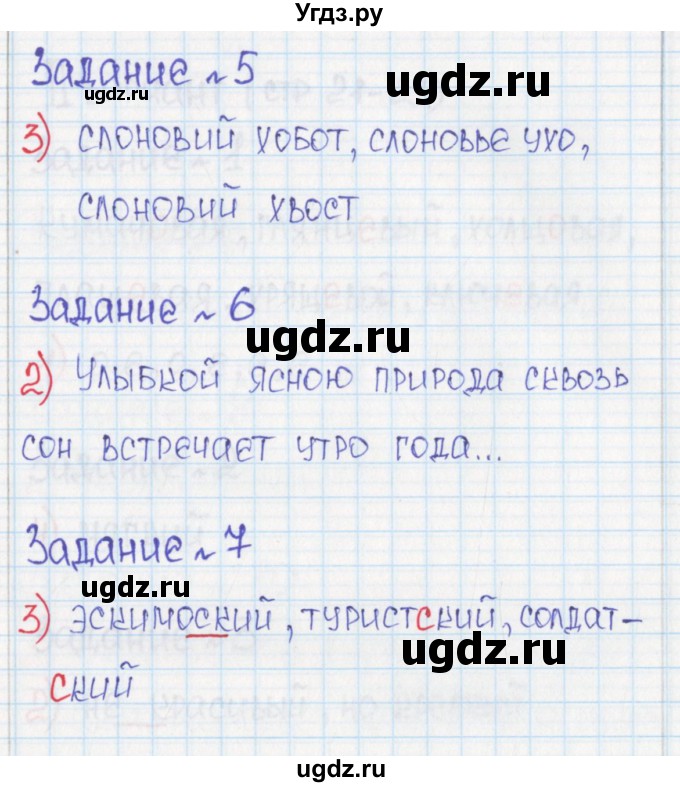 Угдз.ру
Задание ~ 5
ugdz.ru
ugdz.ru
3) слоновий хобот, слоновье ухо,
слоновий хвост
Задание ~ 6
ugdz.ru
ugdz.ru
2) Улыбкой ясною природа сквозь
сон встречает утро года...
Задание ~ 7
ugdz.ru
3) эскимоский, туристский, солдат-
ugdz.ru
ский
ugdz.ru